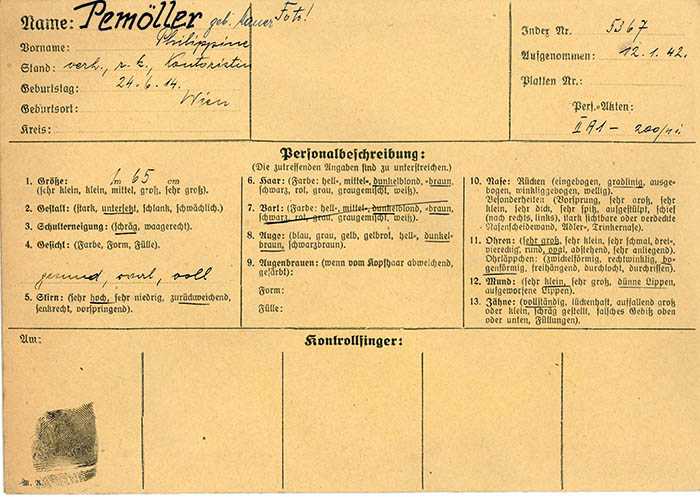 Name: Pemöller geb. Bauer Foto!
Vorname: Philippine
Stand: verh., r. k., Kontoristin
Geburtstag: 24.6.14.
Geburtsort: Wien
Kreis:
Index Nr. 5367
Aufgenommen: 12.1.42.
Platten Nr.:
Pers.-Akten:
II A1 - 200/42
Personalbeschreibung:
(Die zutreffenden Angaben sind zu unterstreichen.)
1. Größe: 1 m 65 cm
(sehr klein, klein, mittel, groß, sehr groß).
2. Gestalt: (stark, untersetzt, schlank, schwächlich.)
3. Schulterneigung: (schräg, waagerecht.)
4. Gesicht: (Farbe, Form, Fülle).
gesund, oval, voll
5. Stirn: (sehr hoch, sehr niedrig, zurückweichend,
senkrecht, vorspringend).
6. Haar: (Farbe: hell-, mittel-, dunkelblond, -braun,
schwarz, rot, grau, graugemischt, weiß).
7. Bart: (Farbe: hell-, mittel-, dunkelblond, -braun,
schwarz, rot, grau, graugemischt, weiß).
8. Auge: (blau, grau, gelb, gelbrot, hell-, dunkel-
braun, schwarzbraun).
9. Augenbrauen: (wenn vom Kopfhaar abweichend,
gefärbt):
Form:
Fülle:
10. Nase: Rücken (eingebogen, gradlinig, ausge-
bogen, winkliggebogen, wellig).
Besonderheiten (Vorsprung, sehr groß, sehr
klein, sehr dick, sehr spitz, aufgestülpt, schief
(nach rechts, links), stark sichtbare oder verdeckte
Nasenscheidewand, Adler-, Trinkernase).
11. Ohren: (sehr groß, sehr klein, sehr schmal, drei-
viereckig, rund, oval, abstehend, sehr anliegend).
Ohrläppchen: (zwickelförmig, rechtwinklig, bo-
genförmig, freihängend, durchlocht, durchrissen).
12. Mund: (sehr klein, sehr groß, dünne Lippen,
aufgeworfene Lippen).
13. Zähne: (vollständig, lückenhaft, auffallend groß
oder klein, schräg gestellt, falsches Gebiß oben
oder unten, Füllungen).
Am:
Kontrollfinger: